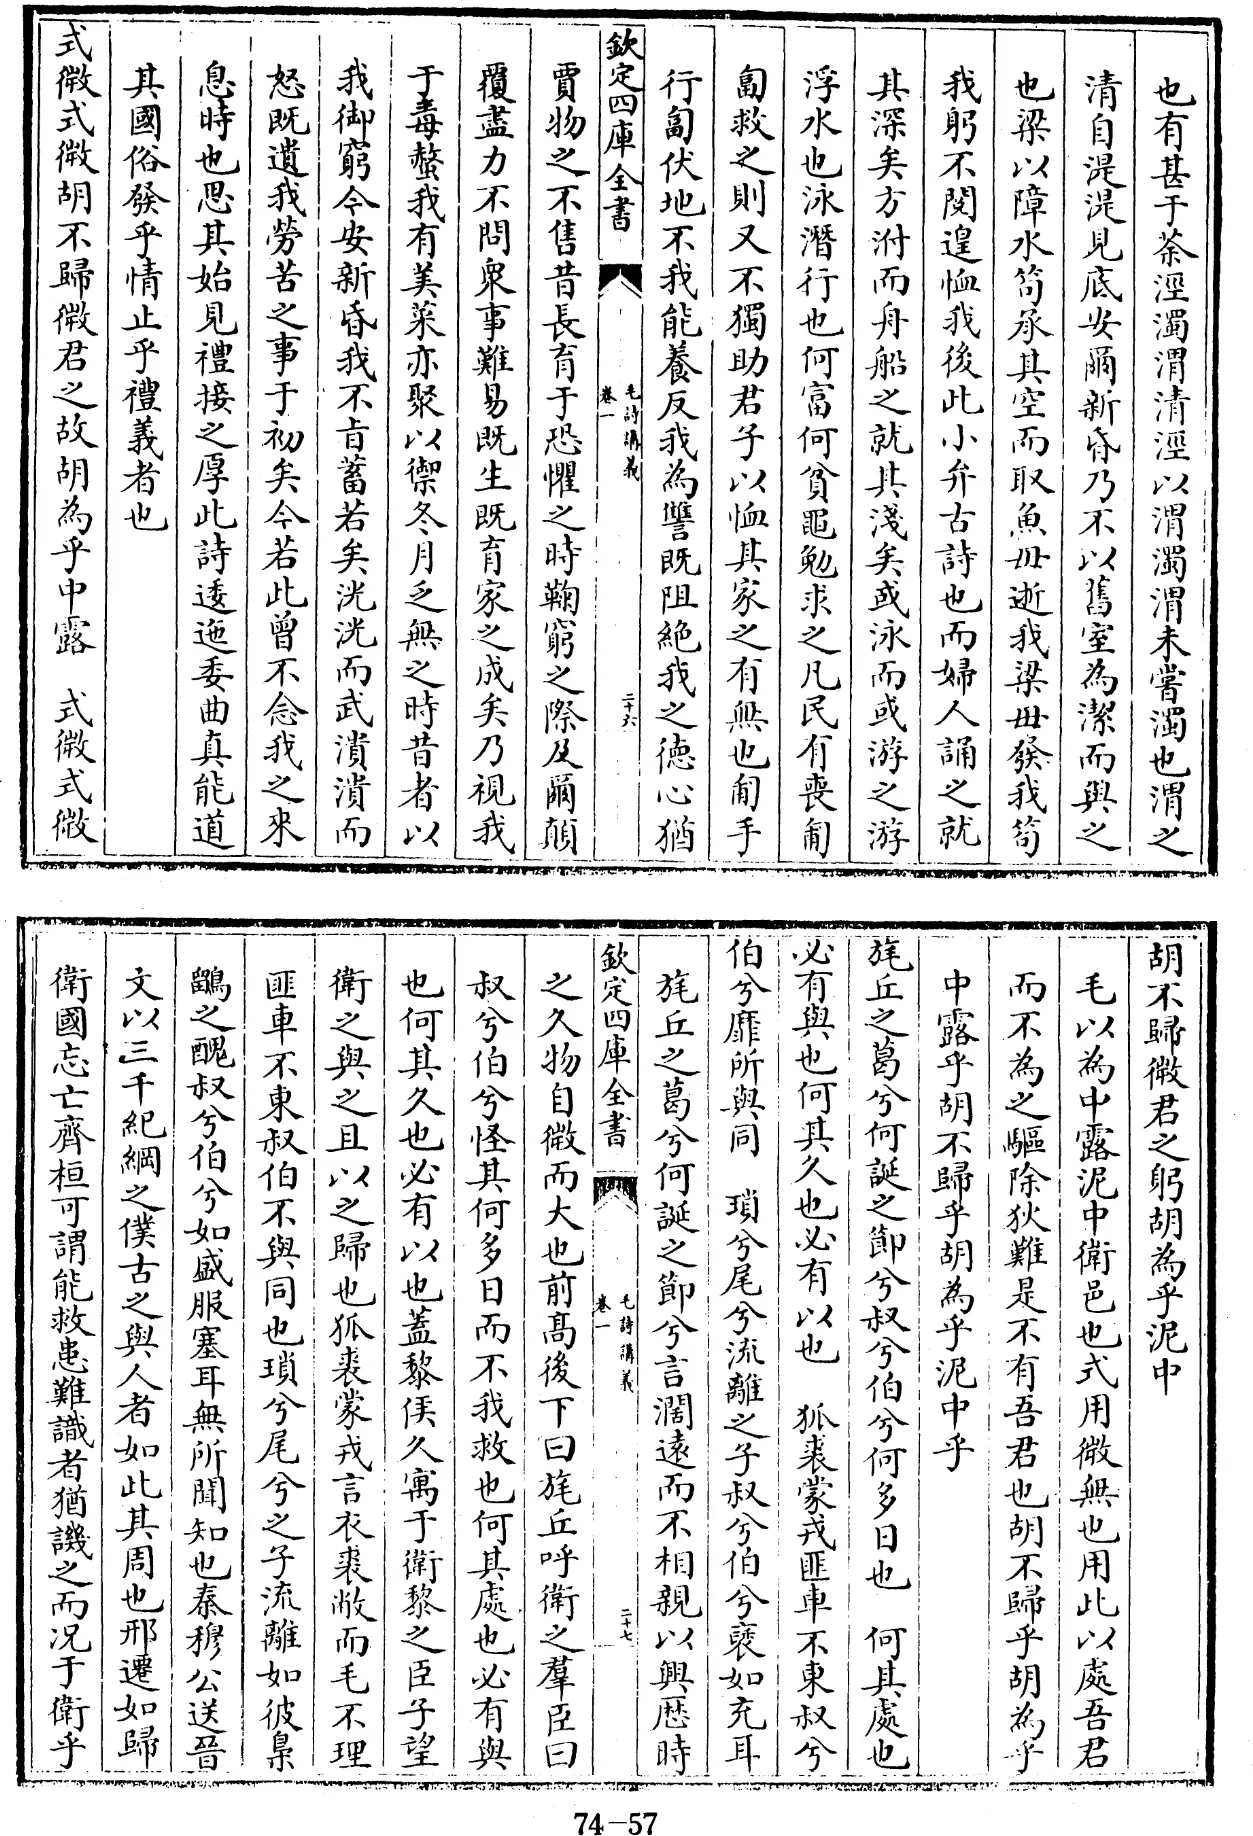 也有甚于荼涇濁渭清涇以渭濁渭未嘗濁也渭之
清自湜湜見底安爾新昏乃不以舊室為潔而與之
也梁以障水笱承其空而取魚毋逝我梁毋發我笱
我躬不閱遑恤我後此小弁古詩也而婦人誦之就
其深矣方泭而舟船之就其淺矣或泳而或游之游
浮水也泳潛行也何富何貧黽勉求之凡民有喪匍
匐救之則又不獨助君子以恤其家之有無也匍手
行匐伏地不我能養反我為讐既阻絶我之德心猶
欽定四庫全書
毛詩講義
卷一
二十六
賈物之不售昔長育于恐懼之時鞠窮之際及爾顛
覆盡力不問衆事難易既生既育家之成矣乃視我
于毒螫我有美菜亦聚以禦冬月乏無之時昔者以
我御窮今安新昏我不肯蓄若矣洸洸而武潰潰而
怒既遺我勞苦之事于初矣今若此曾不念我之來
息時也思其始見禮接之厚此詩逶迤委曲真能道
其國俗發乎情止乎禮義者也
式微式微胡不歸微君之故胡為乎中露　式微式微
胡不歸微君之躬胡為乎泥中
毛以為中露泥中衛邑也式用微無也用此以處吾君
而不為之驅除狄難是不有吾君也胡不歸乎胡為乎
中露乎胡不歸乎胡為乎泥中乎
旄丘之葛兮何誕之節兮叔兮伯兮何多日也　何其處也
必有與也何其久也必有以也　狐裘蒙戎匪車不東叔兮
伯兮靡所與同　瑣兮尾兮流離之子叔兮伯兮褎如充耳
旄丘之葛兮何誕之節兮言濶遠而不相親以興歴時
欽定四庫全書
毛詩講義
卷一
二十七
之久物自微而大也前髙後下曰旄丘呼衛之羣臣曰
叔兮伯兮怪其何多日而不我救也何其處也必有與
也何其久也必有以也蓋黎侯久寓于衛黎之臣子望
衛之與之且以之歸也狐裘蒙戎言衣裘敝而毛不理
匪車不東叔伯不與同也瑣兮尾兮之子流離如彼梟
鶹之醜叔兮伯兮如盛服塞耳無所聞知也秦穆公送晉
文以三千紀綱之僕古之與人者如此其周也邢遷如歸
衛國忘亡齊桓可謂能救患難識者猶譏之而况于衛乎
74-57